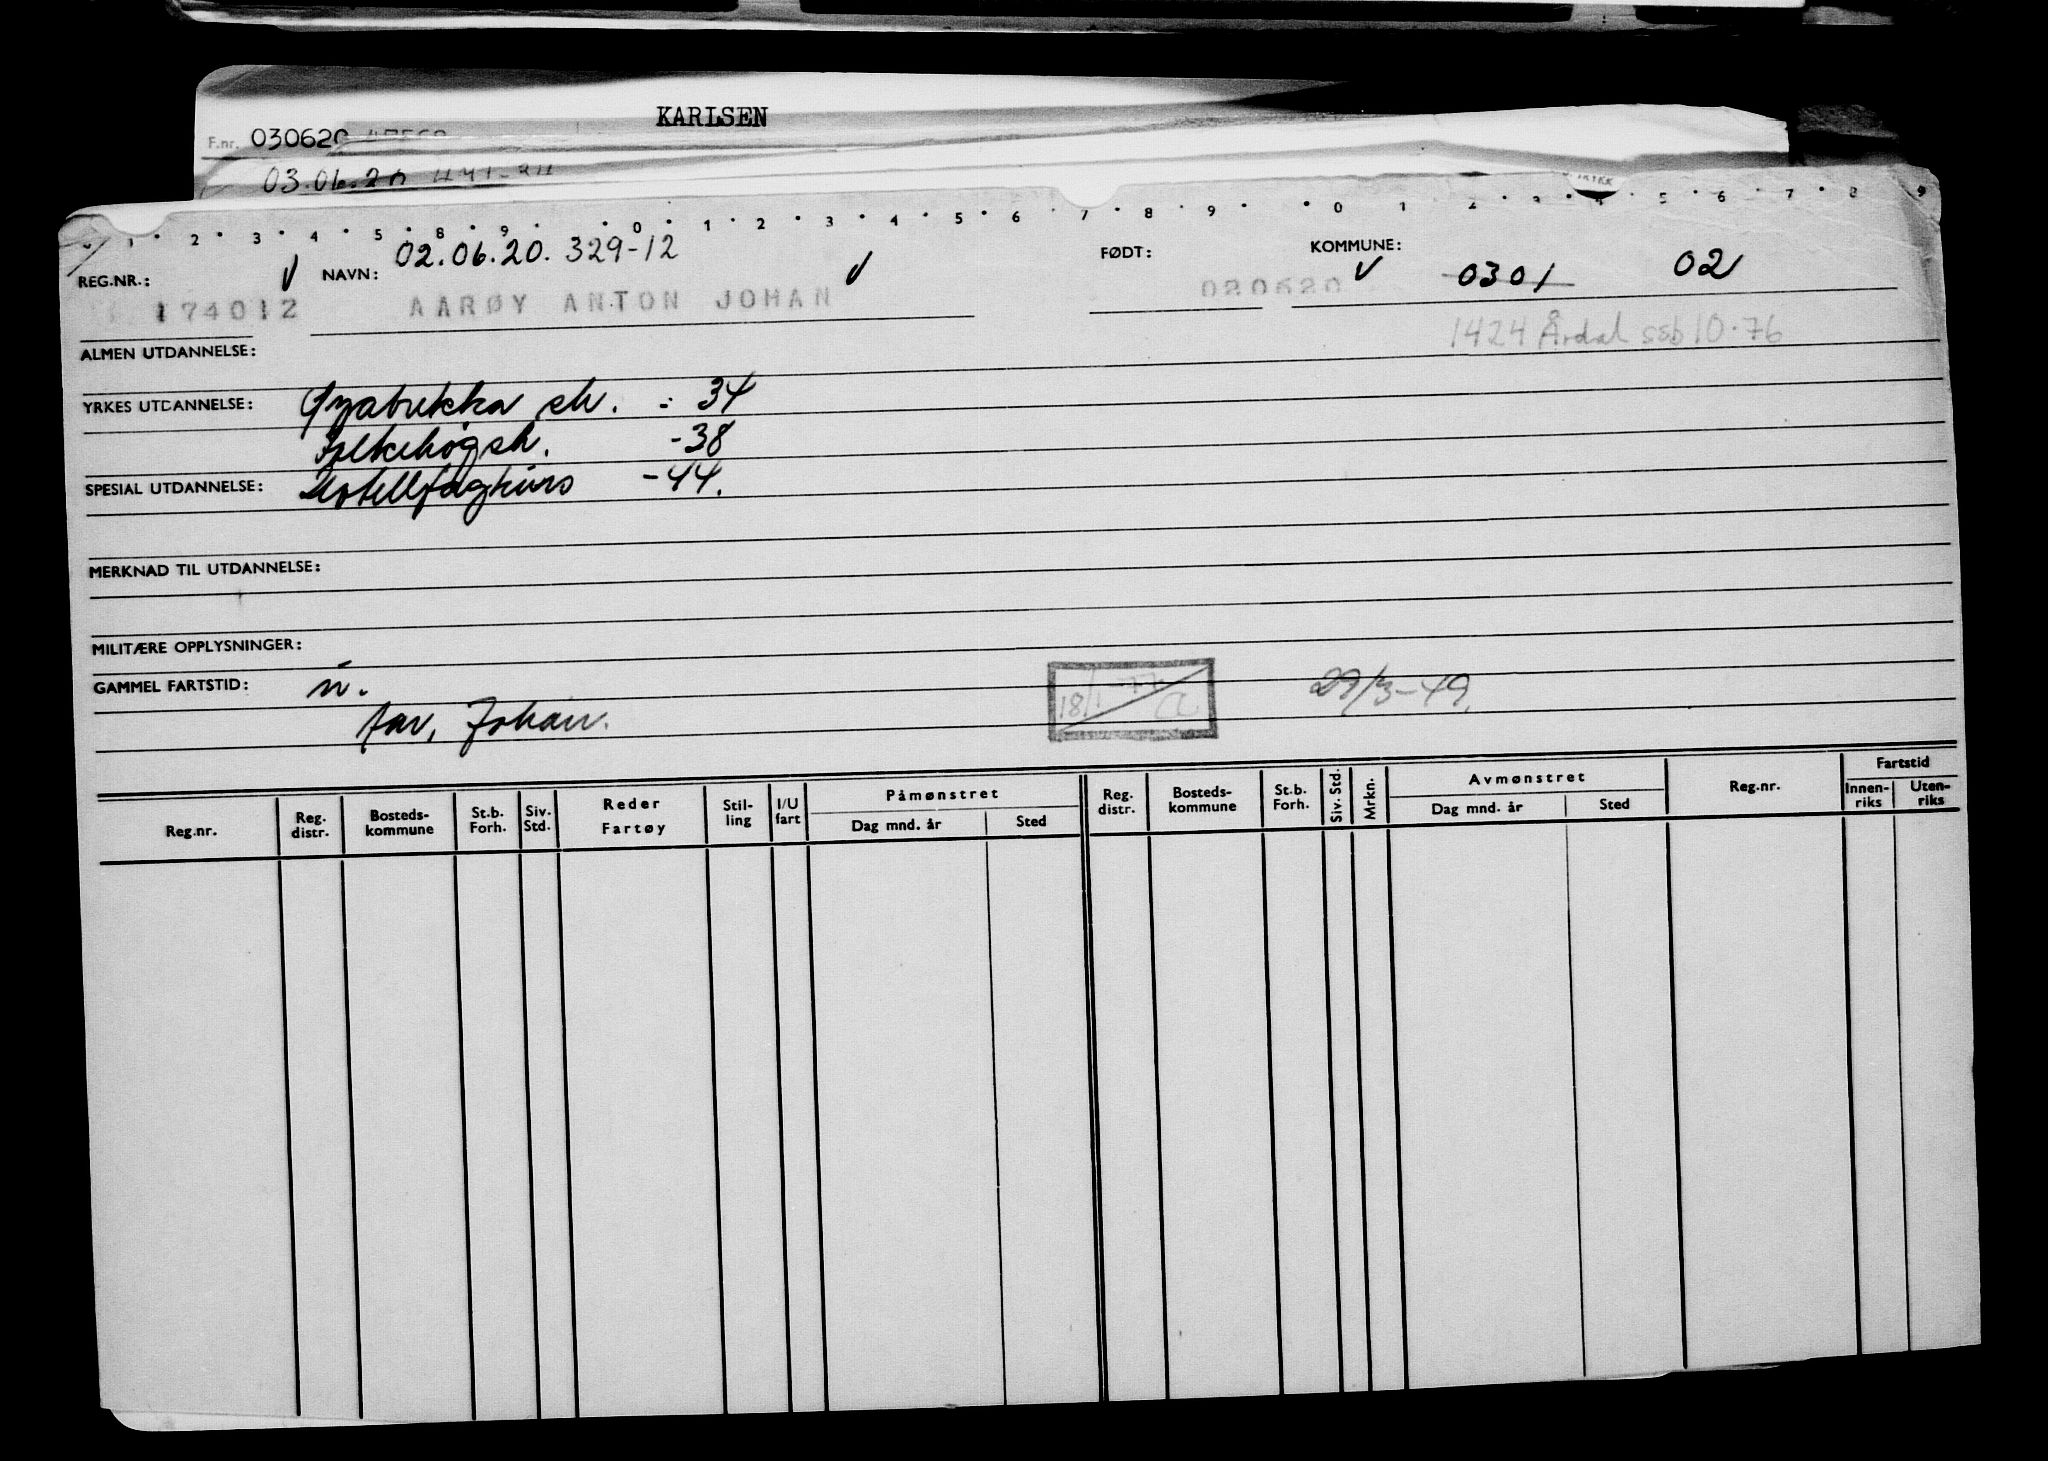 KARLSEN
F.nr. 030620
03.06.20
1 2 3 4 5 8 9 0 1 2 3 4 5 6 7 8 9 0 1 2 3 4 5 6 7 8 9
02.06.20. 329-12
REG.NR.: NAVN: FØDT: KOMMUNE: 0301 02
174012 AARØY ANTON JOHAN 020620
1424 Årdal ssb 10-76
ALMEN UTDANNELSE:
YRKES UTDANNELSE: sk. : 34
Folkehøgsk. -38
SPESIAL UTDANNELSE: Hotellfagkurs -44.
MERKNAD TIL UTDANNELSE:
MILITÆRE OPPLYSNINGER:
GAMMEL FARTSTID: n. 18/1-77 29/3-49.
far, Johan.
Reg.nr. Reg. distr. Bosteds-kommune St.b. Forh. Siv. Std. Reder Fartøy Stil-ling I/U fart Påmønstret Dag mnd. år Sted Reg. distr. Bosteds-kommune St.b. Forh. Siv. Std. Mrkn. Avmønstret Dag mnd. år Sted Reg.nr. Fartstid Innen-riks Uten-riks